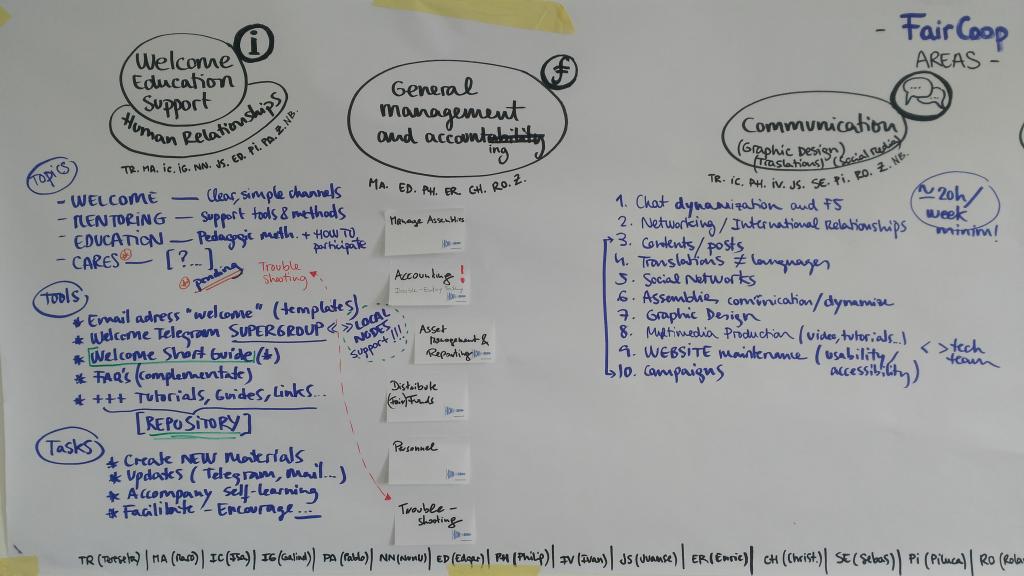 - FairCoop
AREAS -
i
Welcome
Education
Support
Human Relationships
TR. MA. ic. iG. NN. JS. ED. Pi. PA. Z. NB.
Topics
- WELCOME — Clear, simple channels
- MENTORING — Support tools & methods
- EDUCATION — Pedagogic meth. + HOW TO participate
- CARES * — [?...]
* pending
Trouble
Shooting
Tools
* Email adress "welcome" (templates)
* Welcome Telegram SUPERGROUP < >
LOCAL
NODES
Support!!!
* Welcome Short Guide (*)
* FAQ's (complementate)
* +++ Tutorials, Guides, Links...
[REPOSITORY]
Tasks
* Create NEW Materials
* Updates (Telegram, Mail...)
* Accompany self-learning
* Facilitate - Encourage ...
f
General
management
and accountability
ing
MA. ED. PH. ER. CH. RO. Z.
Manage Assemblies
Accounting !
Asset
Management &
Reporting
Distribute
(Fair) Funds
Personnel
Trouble-
shooting
Communication
(Graphic Design)
(Traslations) (Social Media)
TR. iC. PH. iV. JS. SE. Pi. RO. Z. NB.
~ 20h/
week
minim!
1. Chat dynamization and FS
2. Networking / International Relationships
3. Contents / posts
4. Translations ≠ languages
5. Social Networks
6. Assemblies communication / dynamize
7. Graphic Design
8. Multimedia Production (video, tutorials...)
9. WEBSITE maintenance (usability/ accessibility) < > tech team
10. Campaigns
MA (Maro) | IC (Isa) | IG (Galind) | PA (Pablo) | NN (NunU) | ED (Edgar) | PH (Philip) | IV (Ivan) | JS (Juanse) | ER (Enric) | CH (Christ) | SE (Sebas) | Pi (Piluca) | RO